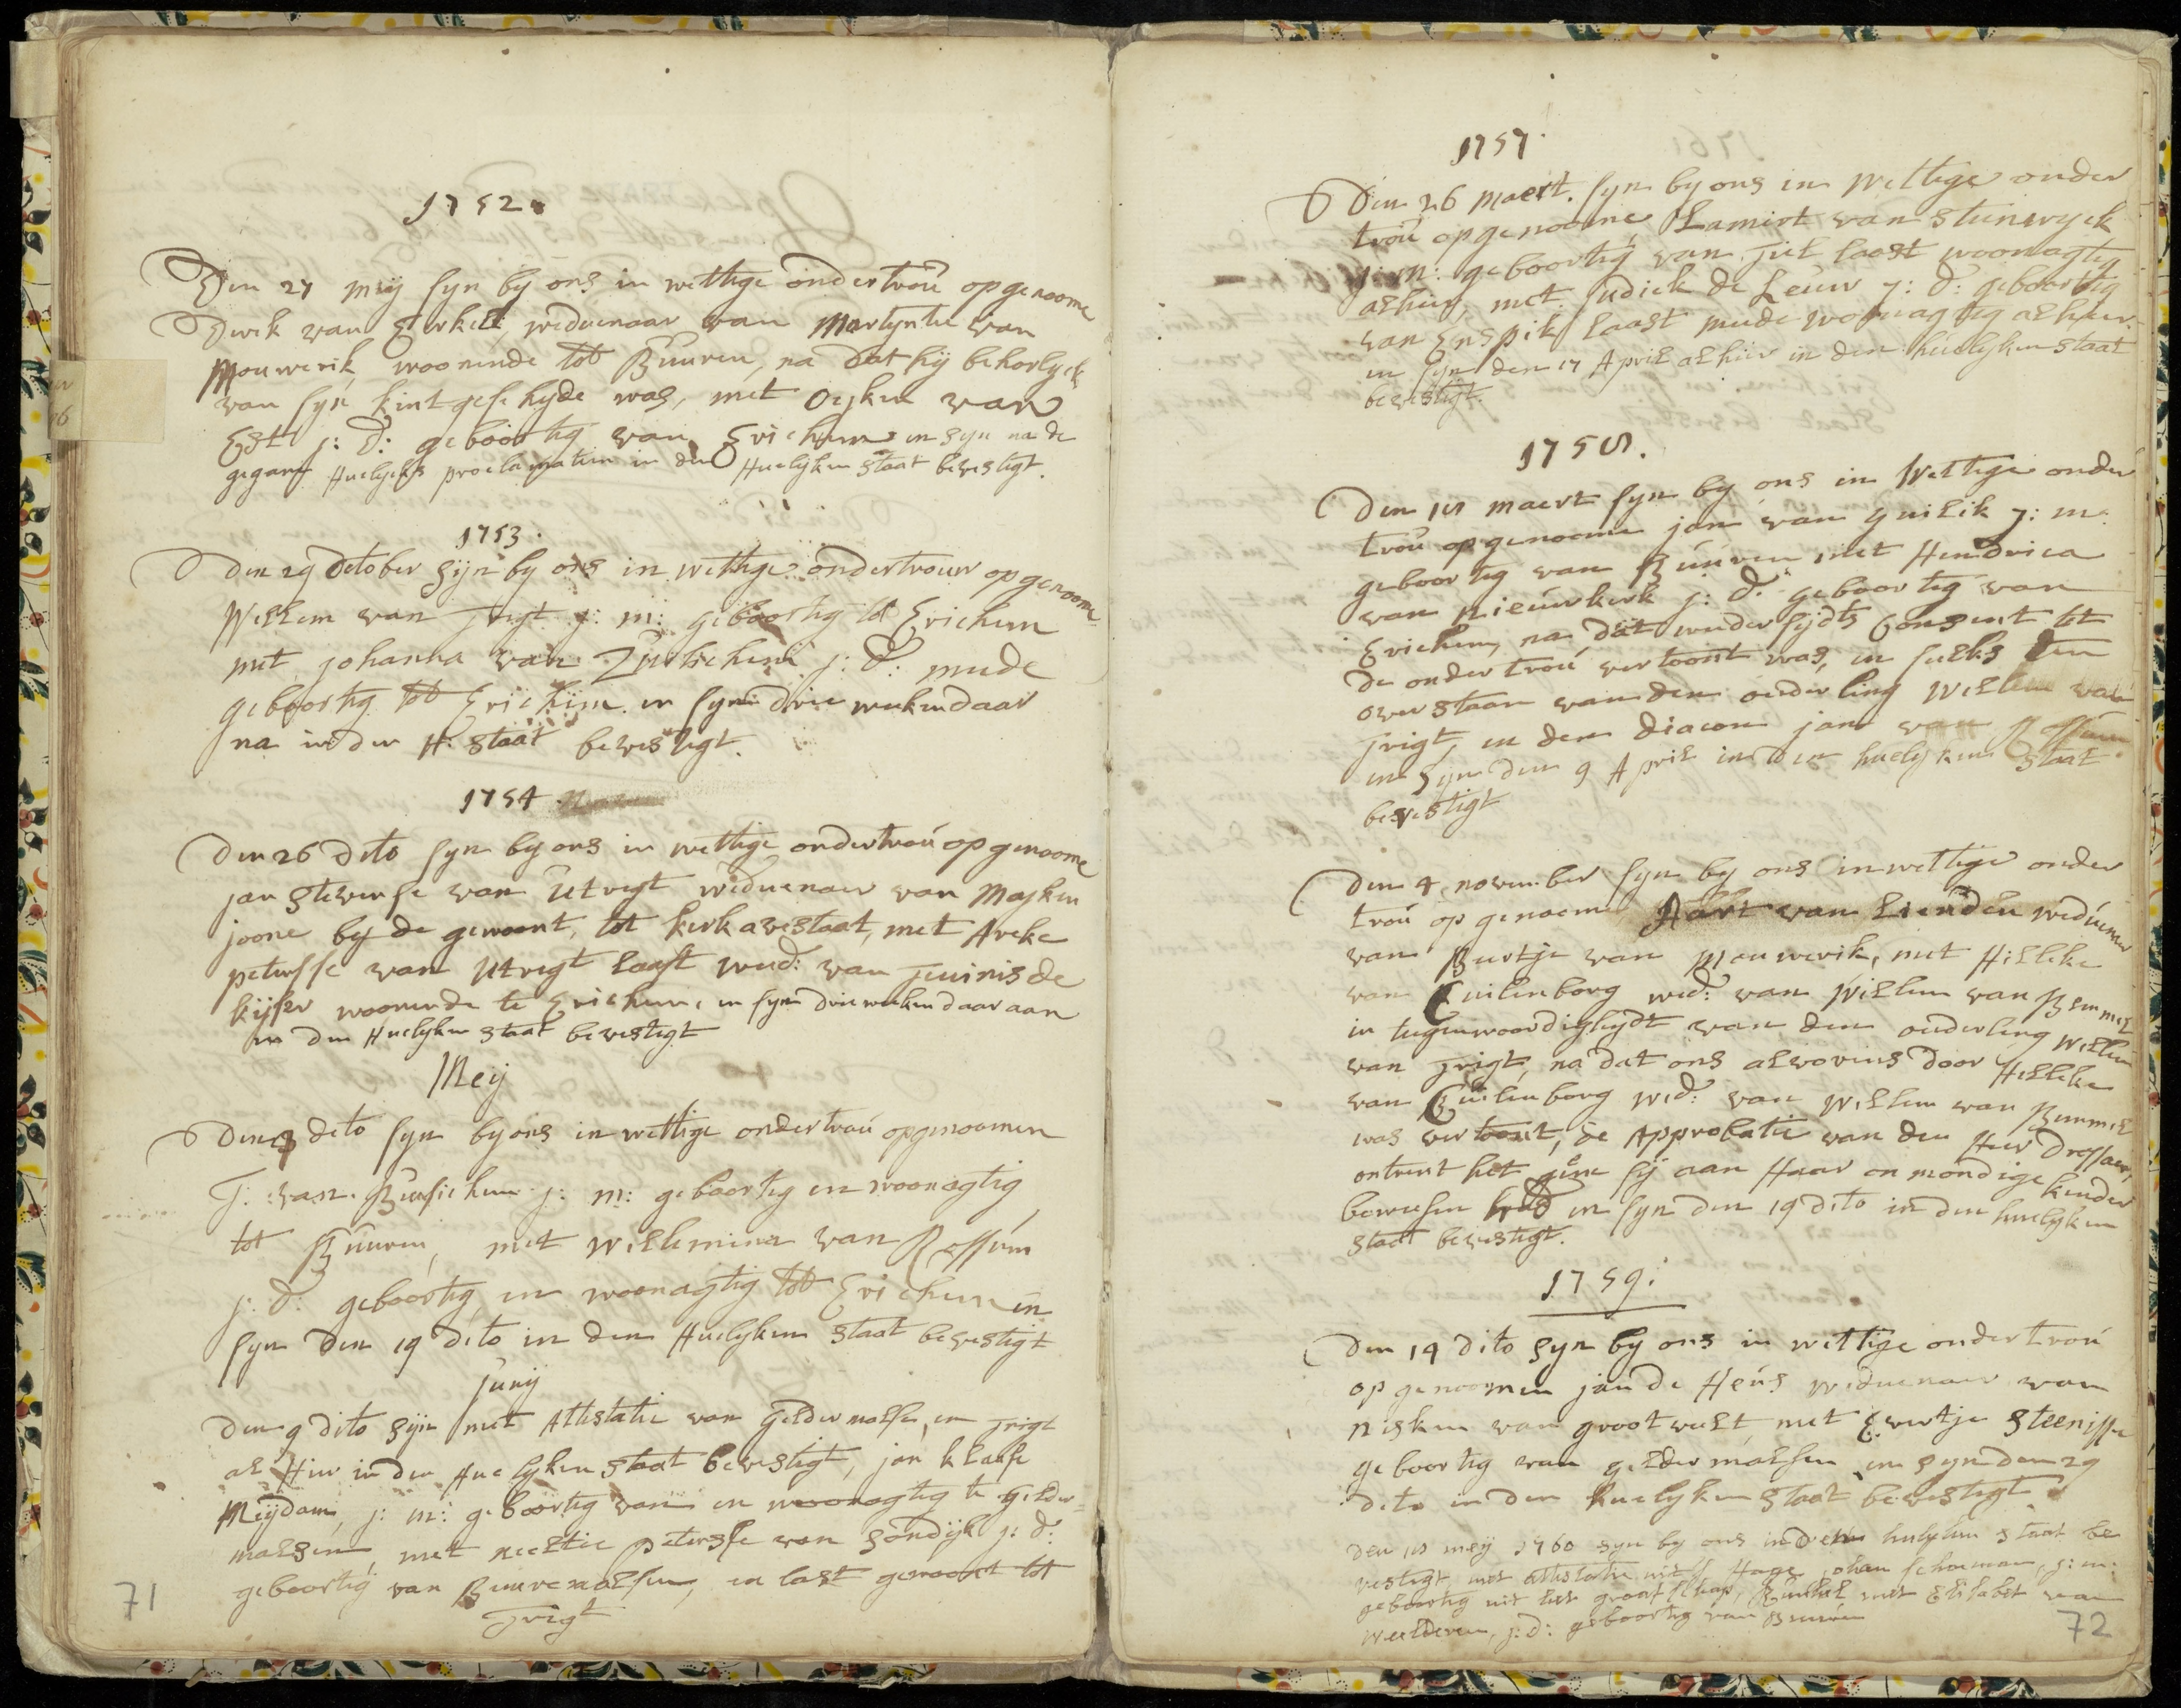 1752.
Den 27 meij syn bij ons in wettige ondertroú opgenoome
Derck van Erkel, weduenaar van Martyntie van
Mouwerik, woonende tot Buuren, na dat hij behorlyck
van syn kint geschyde was, met Oyken van
Est j: d: geboortig van Erichem en syn na de
gegane Huelycks proclamatien in den Huelyken staat bevestigt.
1753.
Den 29 October sijn by ons in wettige ondertrouw opgenoome
Willem van Trigt j: m: geboortig tot Erichem
met johanna van Zuilichem j: d: mede
geboortig tot Erichem en syn drie weken daar
na in den H: staat bevestigt.
1754.
Den 26 dito syn by ons in wettige ondertroú opgenoome
jan stevense van Utregt weduenaer van Mayken
joone by de gewoont, tot kerk avestaat, met Areke
peterse van Utregt laast wed: van Teunis de
kijser woonende te Erichem, en syn drie weeken daar aan
in den Huelyken staat bevestigt
Meij
Den 3 dito syn by ons in wettige ondertroú opgenoomen
J: van Beusichem j: m: geboortig en woonagtig
tot Buuren, met Willemina van Rossum
j: d: geboortig en woonagtig tot Erichem en
syn den 19 dito in den Huelyken staat bevestigt
Junij
Den 9 dito sijn met Attestatie van Geldermalse, en Trigt
al Hier in den Huelyken staat bevestigt, jan klaase
Meijdam, j: m: geboortig van en woonagtig te Gelder=
malsen, met neeltie peterse van Sondijk j: d:
geboortig van Buuremalsen, en last gewoont tot
Trigt
71
1757.
Den 26 Maert. syn by ons in Wettige onder
troú opgenoome Lamert van Steinwyck
j: m: geboortig van Tiel laast woonagtig
alhier, met Judick de Leeuw j: d: geboortig
van Enspik laast mede woonagtig alhier.
en syn den 17 April alhier in den huelyken staat
bevestigt.
1758.
Den 18 maert syn by ons in Wettige onder
troú opgenoome jan van Guilik j: m:
geboortig van Buuren met Hendrica
van Nieuwkerk j: d: geboortig van
Erichem, na dat weder sydts Consent tot
de onder troú vertoont was, en sulks ten
overstaan van den ouderling Willem van
Trigt, en den Diacon jan van Rossum
en syn den 9 April in den huelyken staat
bevestigt
Den 4 november syn by ons in wettige onder
troú opgenoome Aart van Lienden weduenaer
van Burtje van Mouwerik, met Hilleke
van Cuilenborg wed: van Willem van Bemmel
in tegenwoordighydt van den ouderling Willem
van Trigt, na dat ons alvorens door Hilleke
van Cuilenborg wed: van Willem van Bemmel
was vertoont, de Approbatie van den Heer Drossaer,
ontrent het gene sy aan Haar onmondige kinder
bewesen had en syn den 19 dito in den huelyken
staat bevestigt.
1759.
Den 14 dito syn by ons in wettige onder troú
opgenoomen jan de Heús weduenaer van
nisken van grootvelt, met Evertje Steenisse
geboortig van geldermalsen en syn den 29
dito in den huelyken staat bevestigt
Den 18 meij 1760 syn by ons in den huelyken staat be
vestigt met attestatie uit 's Hage johan schoeman, j: m:
geboortig uit het graafschap, met Elisabet van
Weelderen, j: d: geboortig van Buuren
72